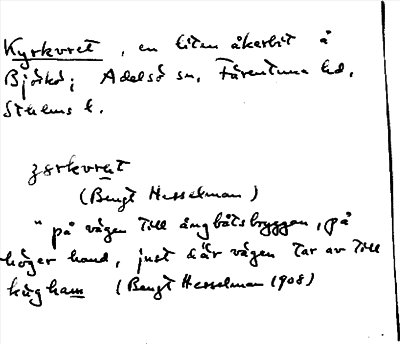 Kyrkvret, en liten åkerbit å
Björkö; Adelsö sn, Färentuna hd,
Sthlms l.
kvret
(Bengt Hesselman)
"på vägen till ångbåtsbryggan, på
höger hand, just där vägen tar av till
(Bengt Hesselman 1908)